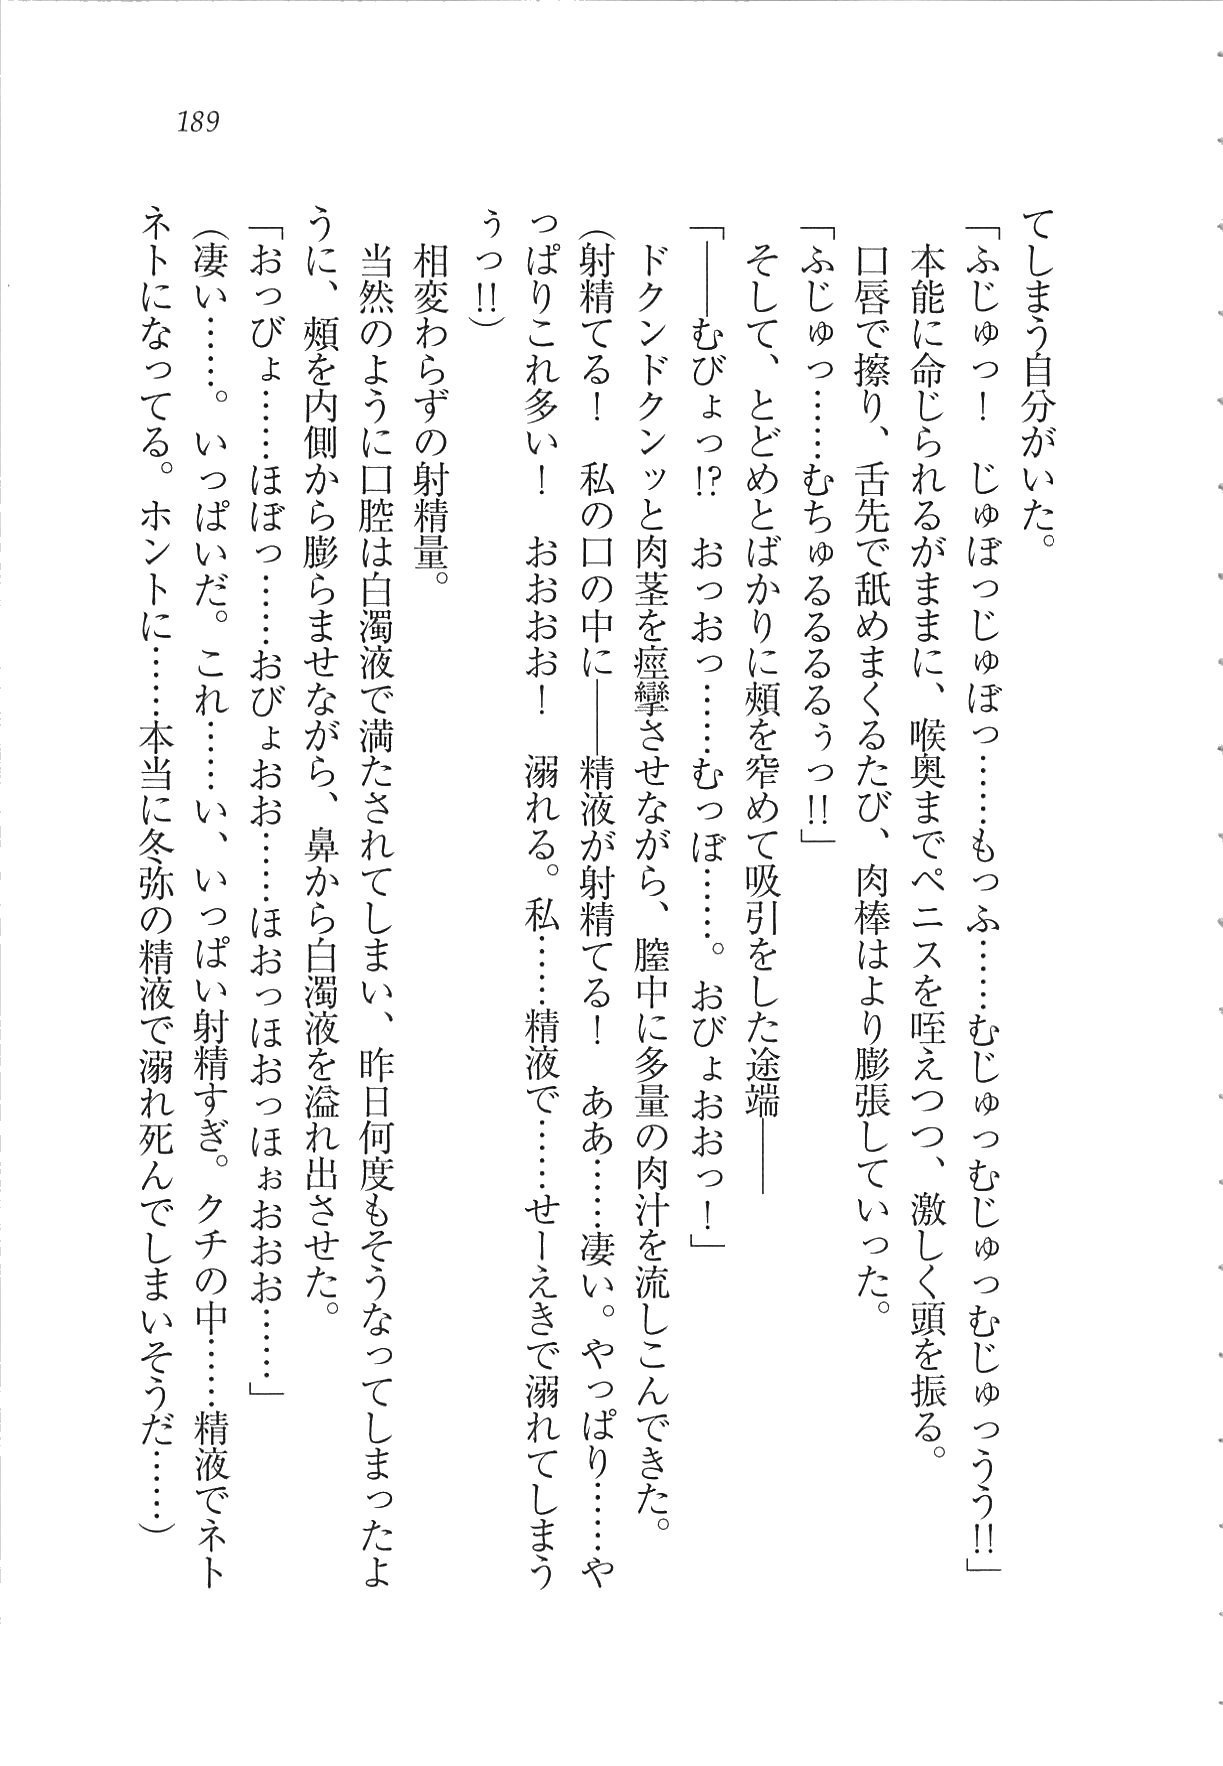 189
てしまう自分がいた。
「ふじゅっ！　じゅぼっじゅぼっ……もっふ……むじゅっむじゅっむじゅっうう!!」
本能に命じられるがままに、喉奥までペニスを咥えつつ、激しく頭を振る。
口唇で擦り、舌先で舐めまくるたび、肉棒はより膨張していった。
「ふじゅっ……むちゅるるるるぅっ!!」
そして、とどめとばかりに頰を窄めて吸引をした途端――
「――むびょっ!?　おっおっ……むっぼ……。おびょおおっ！」
ドクンドクンッと肉茎を痙攣させながら、膣中に多量の肉汁を流しこんできた。
（射精てる！　私の口の中に――精液が射精てる！　ああ……凄い。やっぱり……や
っぱりこれ多い！　おおおお！　溺れる。私……精液で……せーえきで溺れてしまう
ぅっ!!）
相変わらずの射精量。
当然のように口腔は白濁液で満たされてしまい、昨日何度もそうなってしまったよ
うに、頰を内側から膨らませながら、鼻から白濁液を溢れ出させた。
「おっびょ……ほぼっ……おびょおお……ほおっほおっほぉおおお……」
（凄い……。いっぱいだ。これ……い、いっぱい射精すぎ。クチの中……精液でネト
ネトになってる。ホントに……本当に冬弥の精液で溺れ死んでしまいそうだ……）